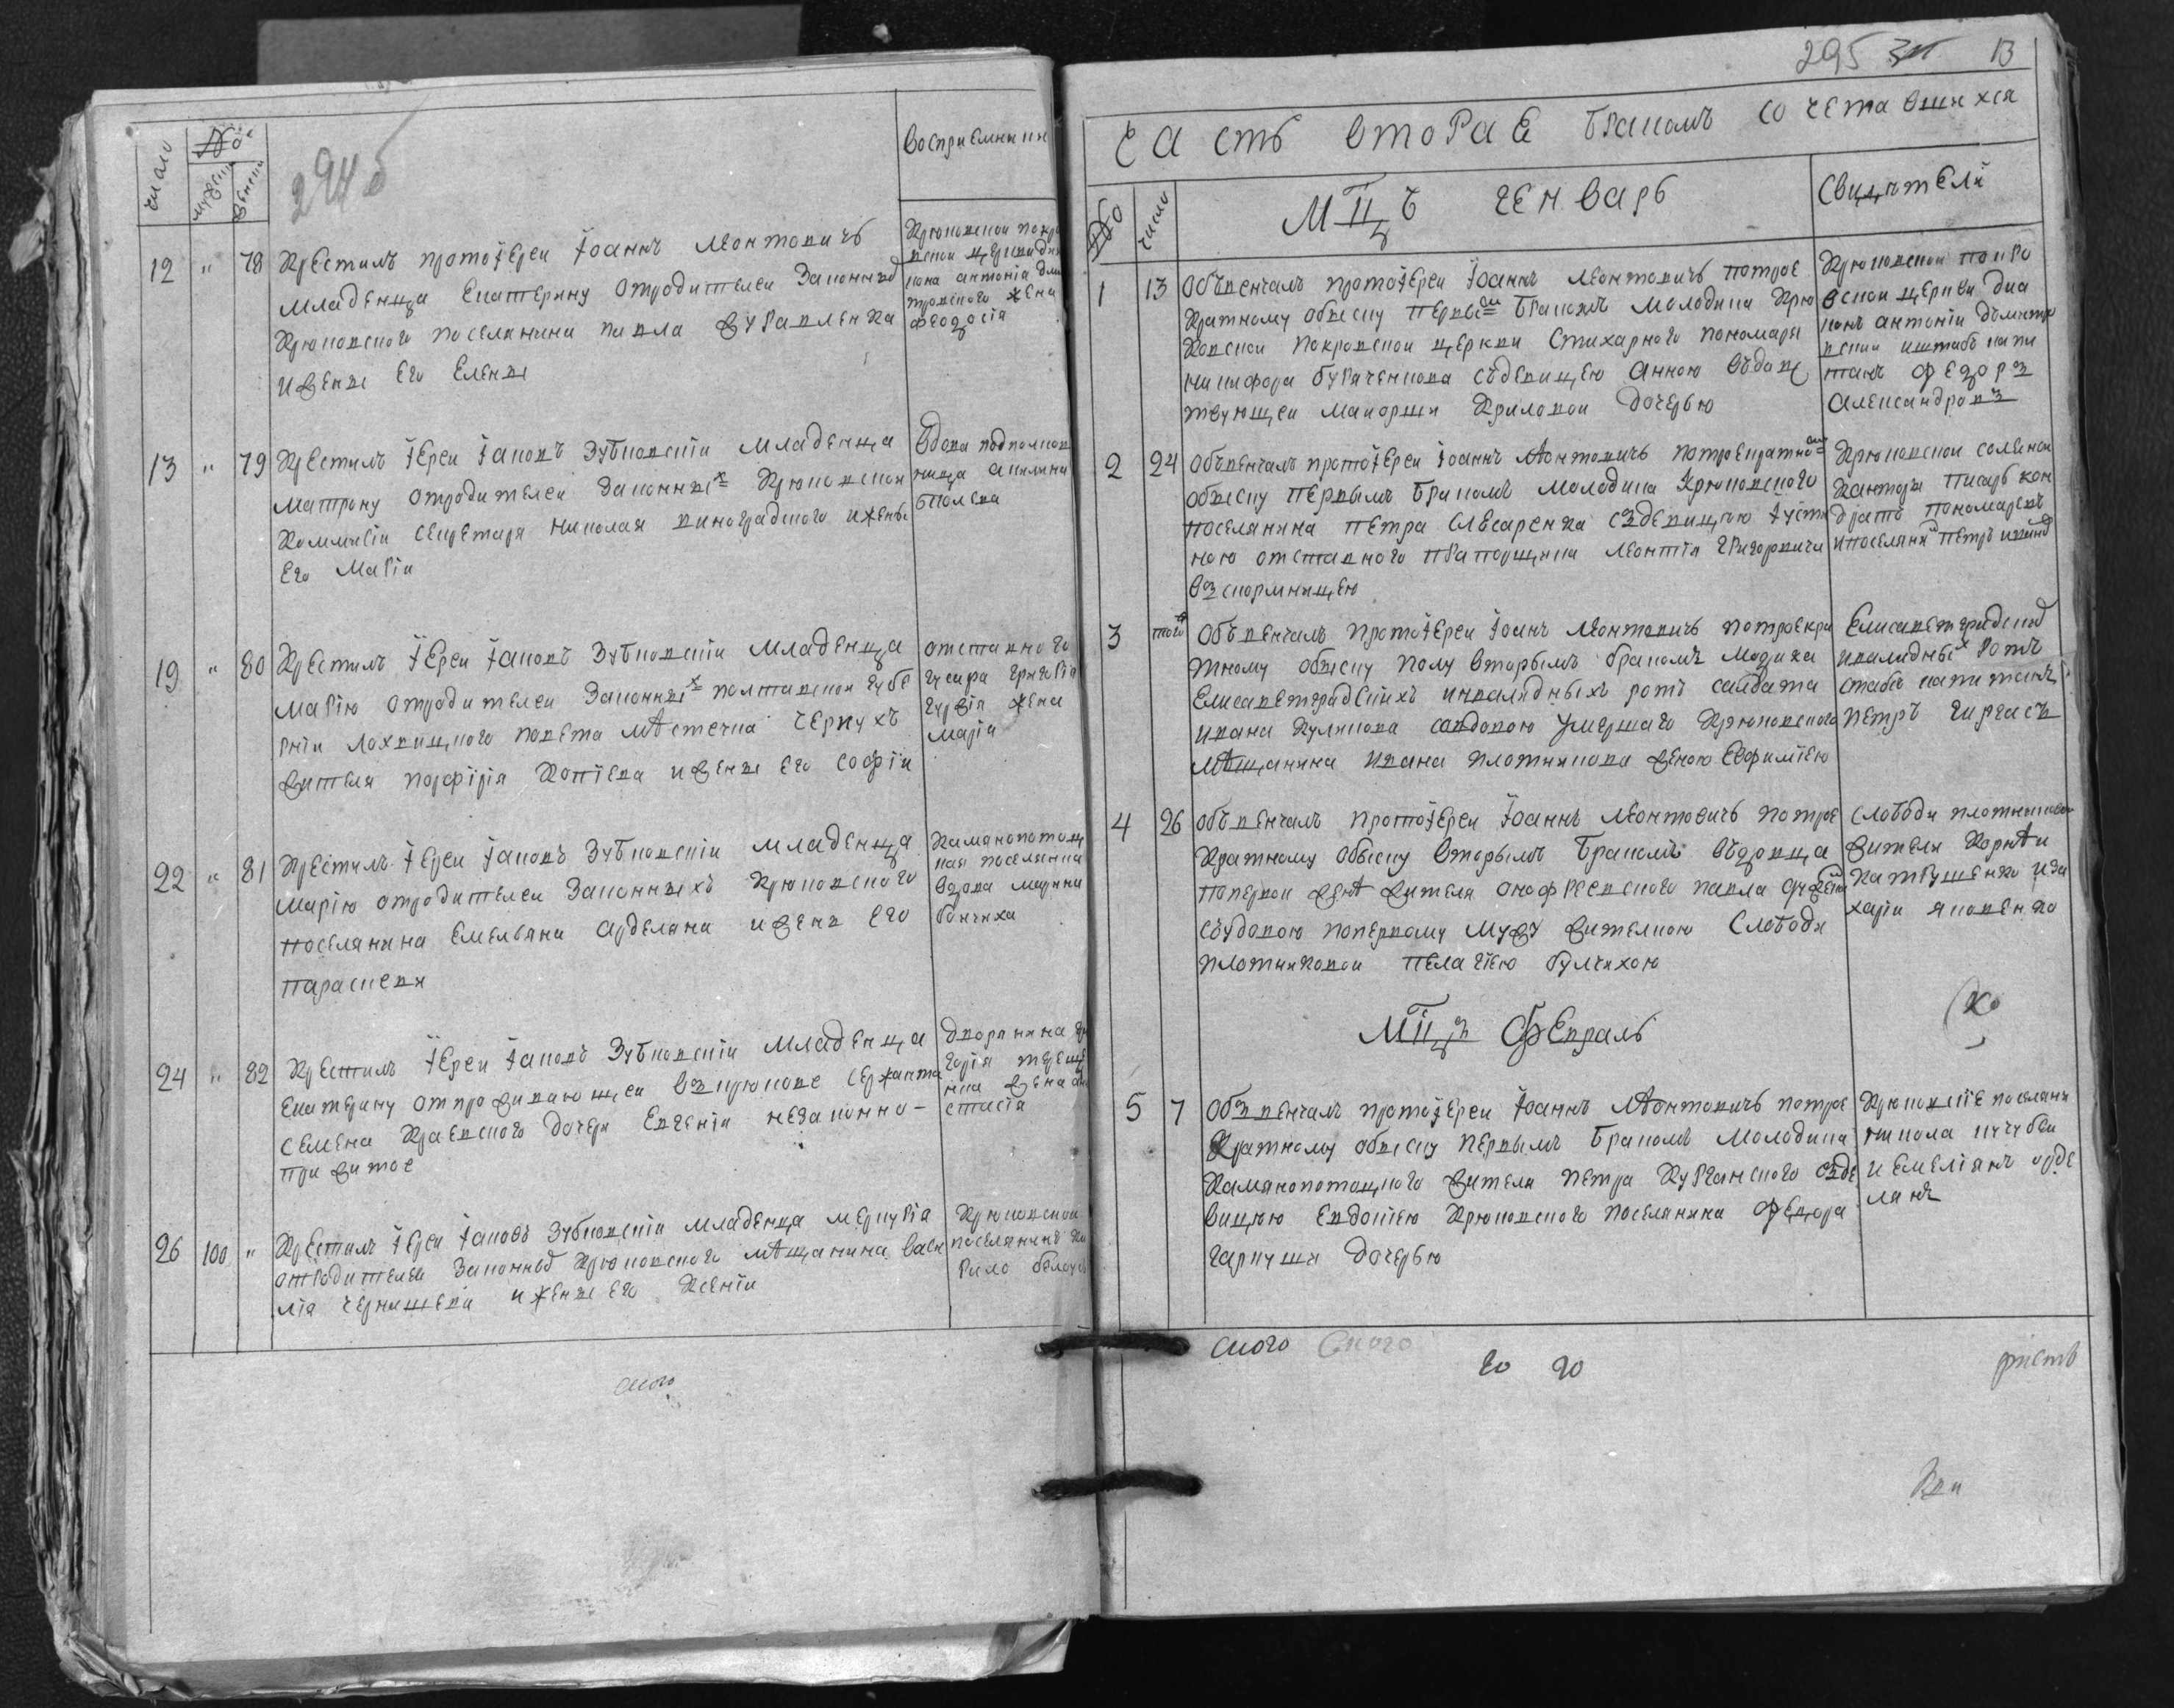 число
№
мужеск
женски
294 б
Восприемники
12 " 78 Крестилъ протоіерей Іоаннъ Леонтовичъ
младенца Екатерину отродителей законныхъ
Крюковского поселянина Павла Журавленка
ижены его Елены
Крюковской покро
вской церкви дия
кона Антонія Дми
тровского жена
Феодосія
13 " 79 Крестилъ іерей Іаковъ Зубковскій младенца
Матрону отродителей законныхъ Крюковской
Коммисіи секретаря Николая Виноградского ижены
его Маріи
Вдова подполков
ница Акилина
19 " 80 Крестилъ іерей Іаковъ Зубковскій младенца
Марію отродителей законныхъ полтавской губе
рніи Лохвицкого повета местечка Чернухъ
жителя Порфирія Коптева ижены его Софіи
отставного
гусара Григорія
жена
Марія
22 " 81 Крестилъ іерей Іаковъ Зубковскій младенца
Марію отродителей законныхъ Крюковского
поселянина Емельяна Арделяна ижены его
Параскеви
Каменопотоц
кая поселянка
вдова Марина
24 " 82 Крестилъ іерей Іаковъ Зубковскій младенца
Екатерину отпроживающей въ Крюкове сержанта
Семена Краевского дочери Евгеніи незаконно–
прижитое
Дворянина
жена
стасія
26 100 " Крестилъ іерей Іаковъ Зубковскій младенца Меркурія
отродителей законныхъ Крюковского мѣщанина Васи
лія Чернишева ижены его Ксеніи
Крюковской
поселянинъ Ки
рило
ского
295 13
Часть вторая бракомъ сочетавшихся
№ число
Мцъ Генварь
Свидѣтели
1 13 Обвенчалъ протоіерей Іоаннъ Леонтовичъ потрое
кратному обыску первымъ бракомъ молодика Крю
ковской покровской церкви стихарного пономаря
Никифора Бураченкова съдевицею Анною въдов
ствующей маіорши Криловой дочерью
Крюковской покро
вской церкви диа
конъ Антоній Дъмитро
вский иштабъ капи
танъ Федоръ
Александровъ
2 24 Обвенчалъ протоіерей Іоаннъ Леонтовичъ потроекратно
обыску первымъ бракомъ молодика Крюковского
поселянина Петра Слесаренка съдевицею Іусти
ною отставного прапорщика Леонтія Григоровича
въскормницею
Крюковской соляной
Конторы писарь Кон
дратъ Пономаревъ
ипоселяни Петръ
3 того Обвенчалъ протоіерей Іоанъ Леонтовичъ потроекра
тному обыску полу вторымъ бракомъ
Елисаветградскихъ инвалидныхъ ротъ салдата
Ивана Куликова совдовою умершаго Крюковского
мѣщанина Ивана Плотникова женою Евфиміею
Елисаветградскихъ
инвалидныхъ ротъ
стабъ капитанъ
Петръ
4 26 Обвенчалъ протоіерей Іоаннъ Леонтовичъ потрое
кратному обыску вторымъ бракомъ въдовца
попервой женѣ жителя онофреевского Павла
съудовою попервому мужу жителкою слободы
Плотниковой Пелагіею Булчихою
Слободы Плотниковой
жители Корнѣй
Катрушенко иза
харій Яковенко
Мцъ Февраль
5 7 Обвенчалъ протоіерей Іоаннъ Леонтовичъ потрое
кратному обыску первымъ бракомъ молодика
Каменопотоцкого жителя Петра Курганского съде
вицею Евдокіею Крюковского поселянина Федора
Гаркуши дочерью
Крюковские поселяни
Никола
и Емеліянъ Арде
лянъ
ского ского
го го